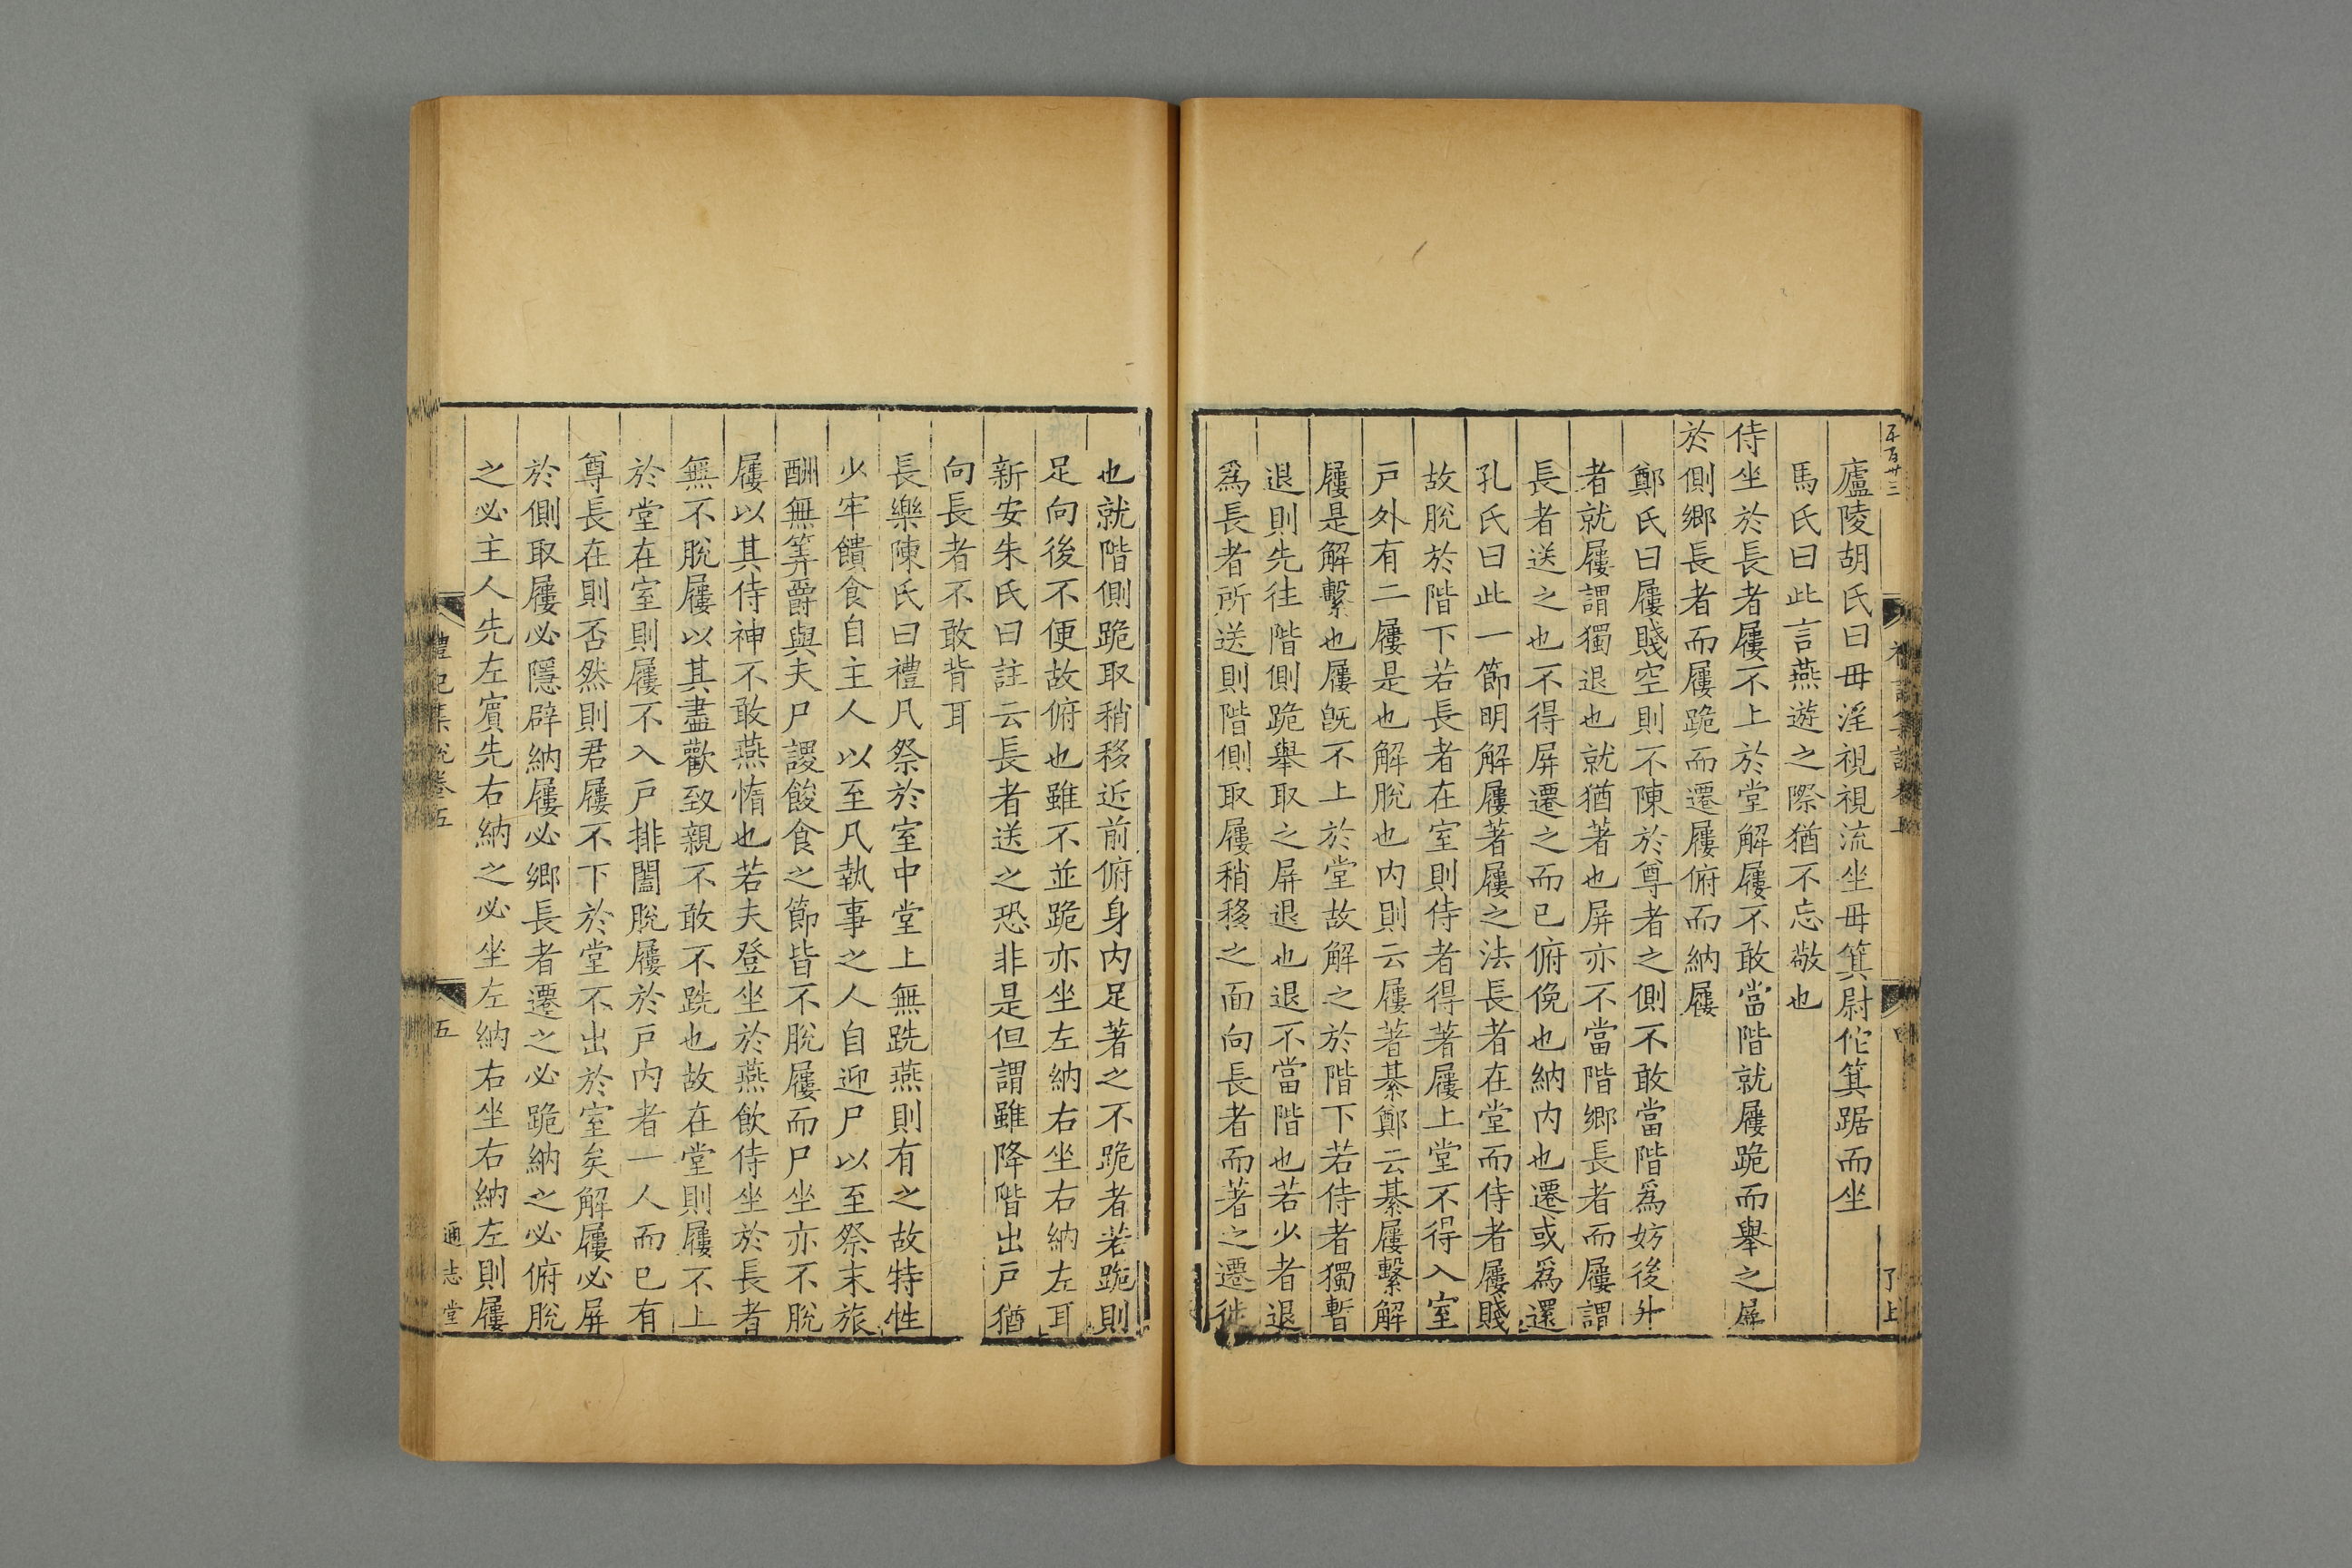 廬陵胡氏曰毋淫視視流坐毋箕尉佗箕踞而坐
馬氏曰此言燕遊之際猶不忘敬也
侍坐於長者屨不上於堂解屨不敢當階就屨跪而舉之屏
於側鄉長者而屨跪而遷屨俯而納屨
鄭氏曰屨賤空則不陳於尊者之側不敢當階爲妨後升
者就屨謂獨退也就猶著也屏亦不當階鄉長者而屨謂
長者送之也不得屏遷之而已俯俛也納内也遷或爲還
孔氏曰此一節明解屨著屨之法長者在堂而侍者屨賤
故脫於階下若長者在室則侍者得著屨上堂不得入室
戸外有二屨是也解脫也内則云屨著綦鄭云綦屨繫解
屨是解繫也屨旣不上於堂故解之於階下若侍者獨暫
退則先往階側跪舉取之屏退也退不當階也若少者退
爲長者所送則階側取屨稍移之面向長者而著之遷徙
也就階側跪取稍移近前俯身内足著之不跪者若跪則
足向後不便故俯也雖不並跪亦坐左納右坐右納左耳
新安朱氏曰註云長者送之恐非是但謂雖降階出戸猶
向長者不敢背耳
長樂陳氏曰禮凡祭於室中堂上無跣燕則有之故特牲
少牢饋食自主人以至凡執事之人自迎尸以至祭末旅
酬無筭爵與夫尸謖餕食之節皆不脫屨而尸坐亦不脫
屨以其侍神不敢燕惰也若夫登坐於燕飲侍坐於長者
無不脫屨以其盡歡致親不敢不跣也故在堂則屨不上
於堂在室則屨不入戸排闔脫屨於戸内者一人而已有
尊長在則否然則君屨不下於堂不出於室矣解屨必屏
於側取屨必隱辟納屨必鄉長者遷之必跪納之必俯脫
之必主人先左賓先右納之必坐左納右坐右納左則屨
禮記集說卷五
五
通志堂